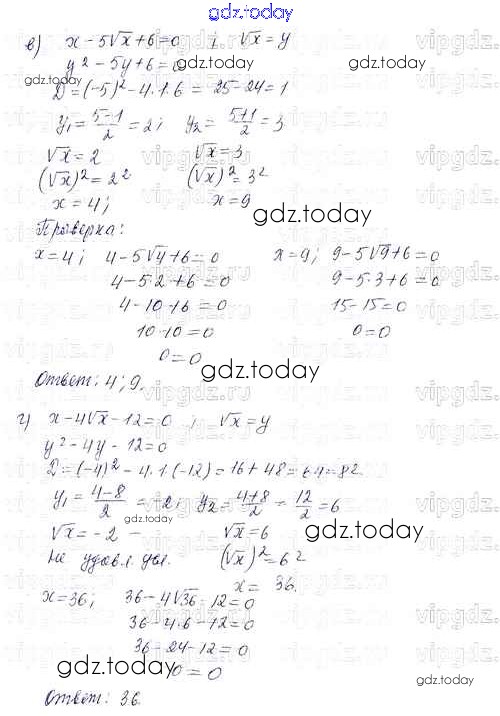 gdz.today
в) x - 5√x + 6 = 0 ; √x = y
y² - 5y + 6 = 0
gdz.today
D = (-5)² - 4·1·6 = 25 - 24 = 1
y₁ = (5-1)/2 = 2; y₂ = (5+1)/2 = 3
√x = 2 √x = 3
(√x)² = 2² (√x)² = 3²
x = 4; x = 9
gdz.today
Проверка:
x = 4; 4 - 5√4 + 6 = 0 x = 9; 9 - 5√9 + 6 = 0
4 - 5·2 + 6 = 0 9 - 5·3 + 6 = 0
4 - 10 + 6 = 0 15 - 15 = 0
10 - 10 = 0 0 = 0
0 = 0
gdz.today
Ответ: 4; 9.
г) x - 4√x - 12 = 0 ; √x = y
y² - 4y - 12 = 0
D = (-4)² - 4·1·(-12) = 16 + 48 = 64 = 8²
y₁ = (4-8)/2 = -2; y₂ = (4+8)/2 = 12/2 = 6
gdz.today
√x = -2 - √x = 6
gdz.today
не удовл. усл. (√x)² = 6²
x = 36.
x = 36; 36 - 4√36 - 12 = 0
36 - 4·6 - 12 = 0
36 - 24 - 12 = 0
gdz.today
0 = 0
gdz.today
Ответ: 36.